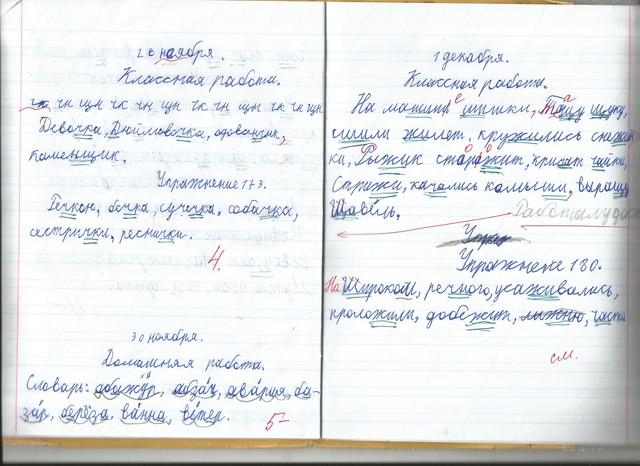 26 ноября.
Классная работа.
чк чн щн чк чн щн чк чн щн чк чн щн
Девочка, Дюймовочка, одованчик,
каменщик.
Упражнение 173.
Речкою, бочка, сучочка, собачка,
сестрички, реснички.
4.
30 ноября.
Домашняя работа.
Словарь: абажур, абзац, авария, ба-
зар, берёза, ванна, ветер.
5-
1 декабря.
Классная работа.
На машине шишки, Тащу щуку,
сшили жилет, кружились снежин
ки, Рыжик сторожит, кричат чайки,
Стрижи, качались камыши, выращу
Щавель.
Упражнение 180.
На Широкой, речного, усаживались,
проложили, добежит, лыжню, часта
см.